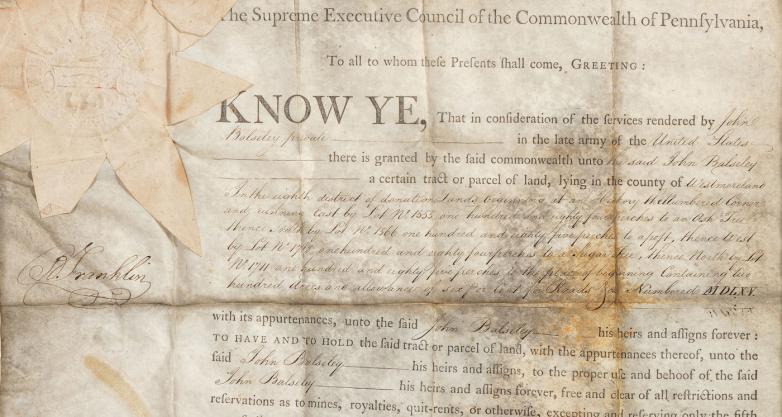 The Supreme Executive Council of the Commonwealth of Pennsylvania,
To all to whom theſe Preſents ſhall come, GREETING:
KNOW YE, That in conſideration of the ſervices rendered by John
Balseley private in the late army of the United States
there is granted by the ſaid commonwealth unto the said John Balseley
a certain tract or parcel of land, lying in the county of Westmoreland
In the eighth district of donation Lands beginning at an Hickory Numbered Corner
and running East by Lot No. 1555 one hundred and eighty four perches to an Ash Tree
thence South by Lot No. 1566 one hundred and eighty five perches to a post, thence West
by Lot No. one hundred and eighty four perches to a Sugar Tree, thence North by Lot
No. 1711 one hundred and eighty five perches to the place of beginning Containing two
hundred Acres and allowance of six for Roads &c Numbered MDLXV.
with its appurtenances, unto the ſaid John Balseley his heirs and aſſigns forever:
TO HAVE AND TO HOLD the ſaid tract or parcel of land, with the appurtenances thereof, unto the
ſaid John Balseley his heirs and aſſigns, to the proper uſe and behoof of the ſaid
John Balseley his heirs and aſſigns forever, free and clear of all reſtrictions and
reſervations as to mines, royalties, quit-rents, or otherwiſe, excepting and reſerving only the fifth
B. Franklin